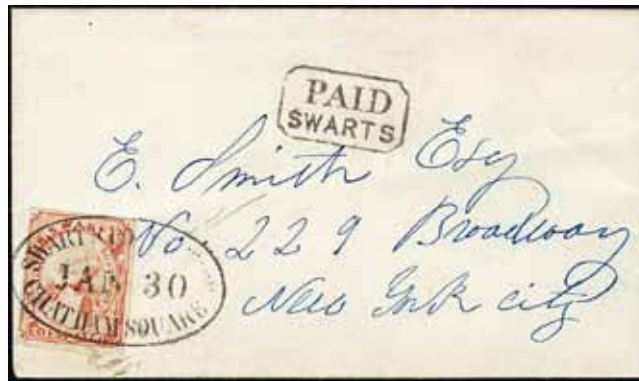 PAID
SWARTS
E. Smith Esq
No. 229 Broadway
New York City
JAN 30
CHATHAM SQUARE